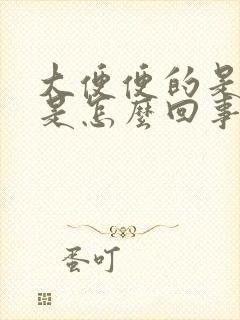 大便便的是
是怎麼回事
蛋叮